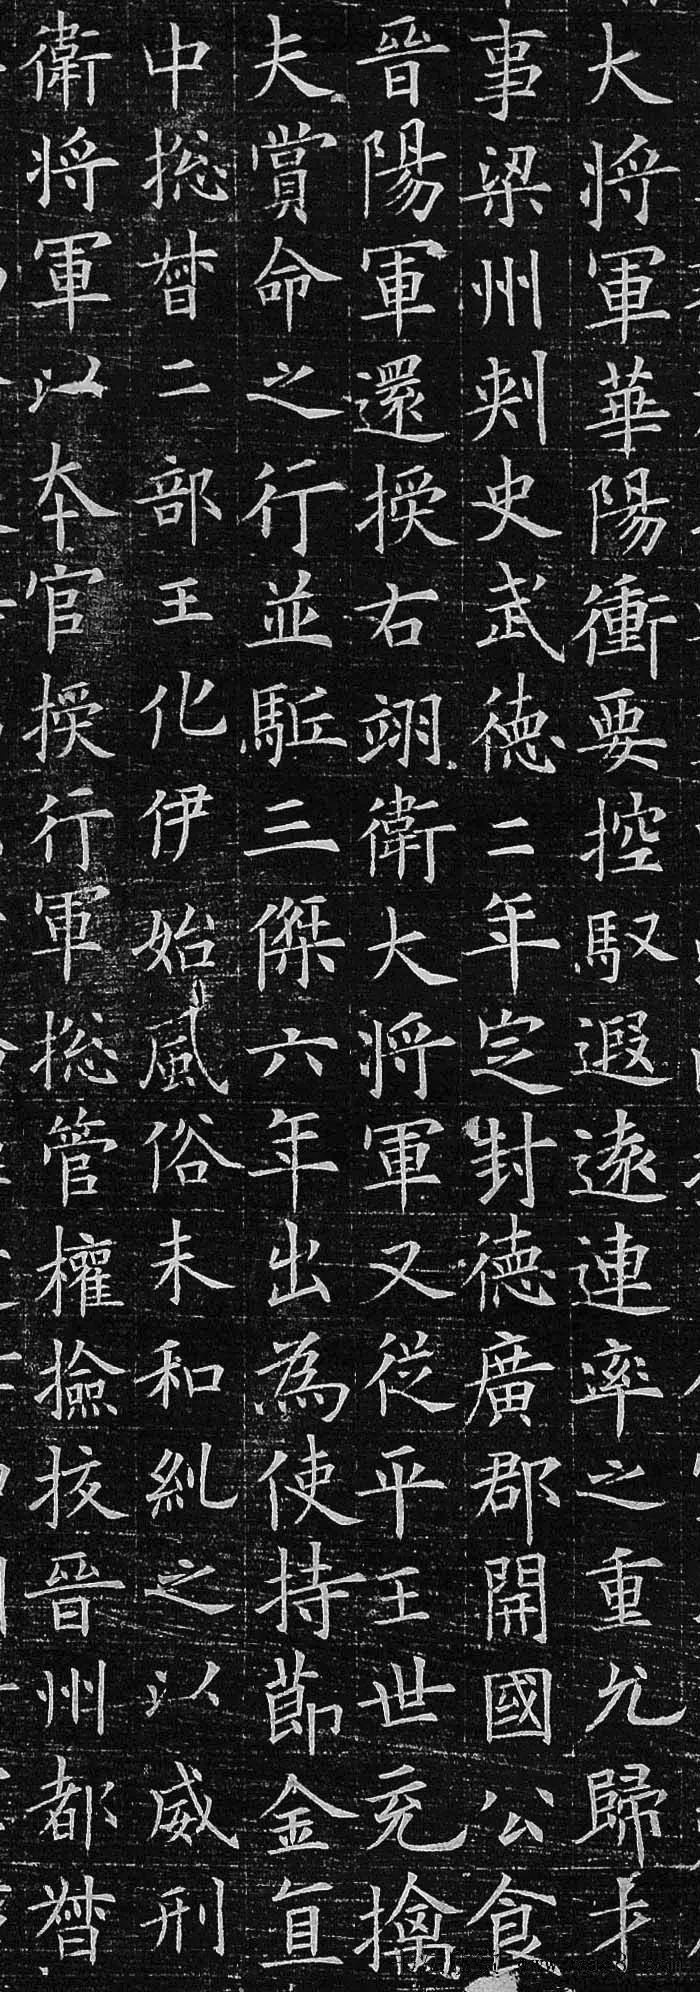 大將軍華陽衝要控馭遐遠連率之重允歸才
事梁州刾史武德二年定封德廣郡開國公食
晉陽軍還授右翊衛大將軍又從平王世充擒
夫賞命之行並駈三傑六年出為使持節金直
中揔督二部王化伊始風俗未和糺之以威刑
衛將軍以本官授行軍揔管權撿挍晉州都督